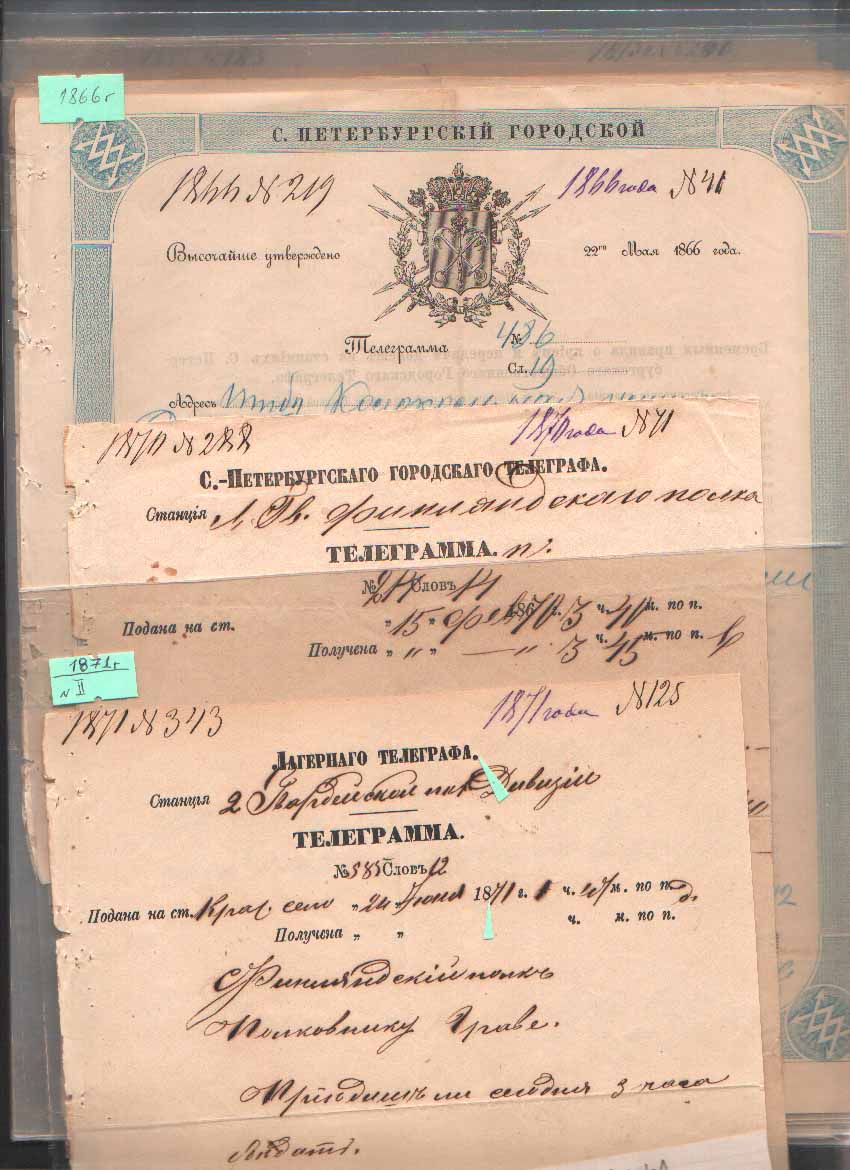 1866г
С. ПЕТЕРБУРГСКІЙ ГОРОДСКОЙ
1866 N 219
1866 года N 41
Высочайше утверждено 22го Мая 1866 года.
Телеграмма № 486
Сл. 19
Адресъ
1870 N 288
1870 года N 71
С.-ПЕТЕРБУРГСКАГО ГОРОДСКАГО ТЕЛЕГРАФА.
Станція Л. Гв. Финляндскаго полка
ТЕЛЕГРАММА.
№ Словъ 14
Подана на ст. „ 15 „ фев 1870 г. 3 ч. 40 м. по п.
Получена „ „ „ „ 3 ч. 45 м. по п.
1871г
N II
1871 N 343
1871 года N 125
ЛАГЕРНАГО ТЕЛЕГРАФА.
Станція 2 Гвардейской пѣх Дивизіи
ТЕЛЕГРАММА.
№ 585 Словъ 12
Подана на ст. Крас. село „ 24 „ Іюня 1871 г. 1 ч. м. по п.
Получена „ „ ч. м. по п.
Финляндскій полкъ
Полковнику Граве.
Пріѣдишь ли сегодня 3 часа